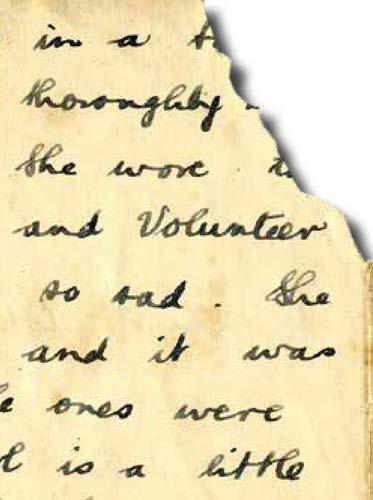 in a
thoroughly
she wore
and Volunteer
so sad. She
and it was
ones were
is a little